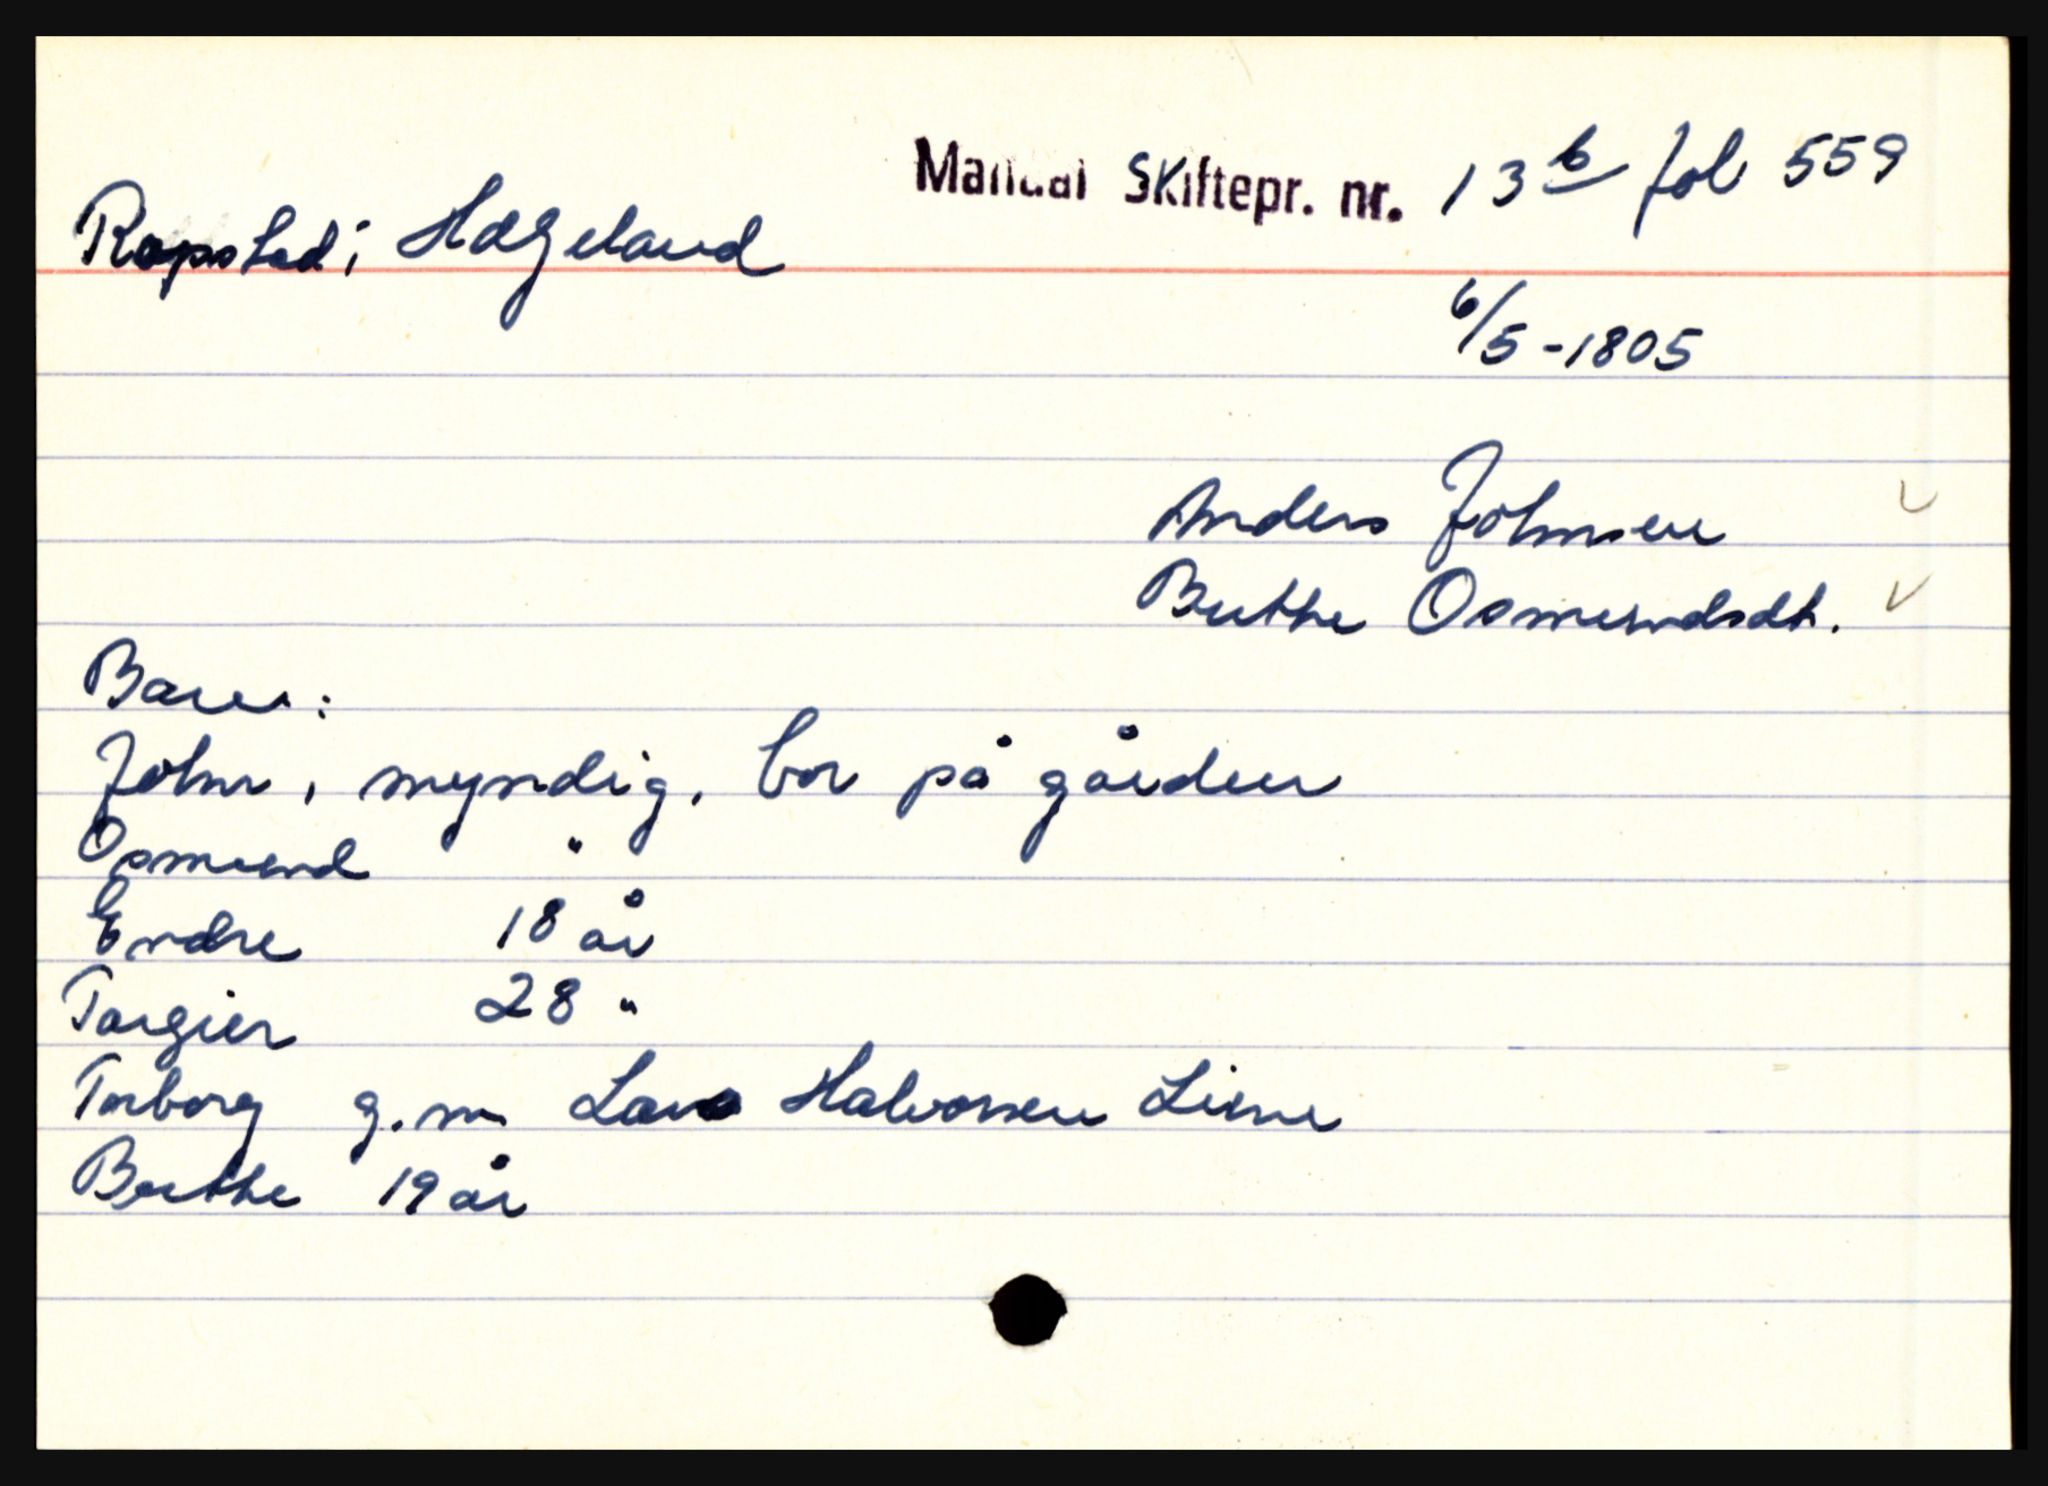 Mandal Skiftepr. nr. 13 b fol 559
Ropstad i Hægeland
6/5-1805
Anders Johnsen
Berthe Osmundsdt.
Barn:
John, myndig, bor på gården
Osmund "
Endre 18 år
Torgier 28 "
Torborg g.m. Lars Halvorsen Liene
Berthe 19 år